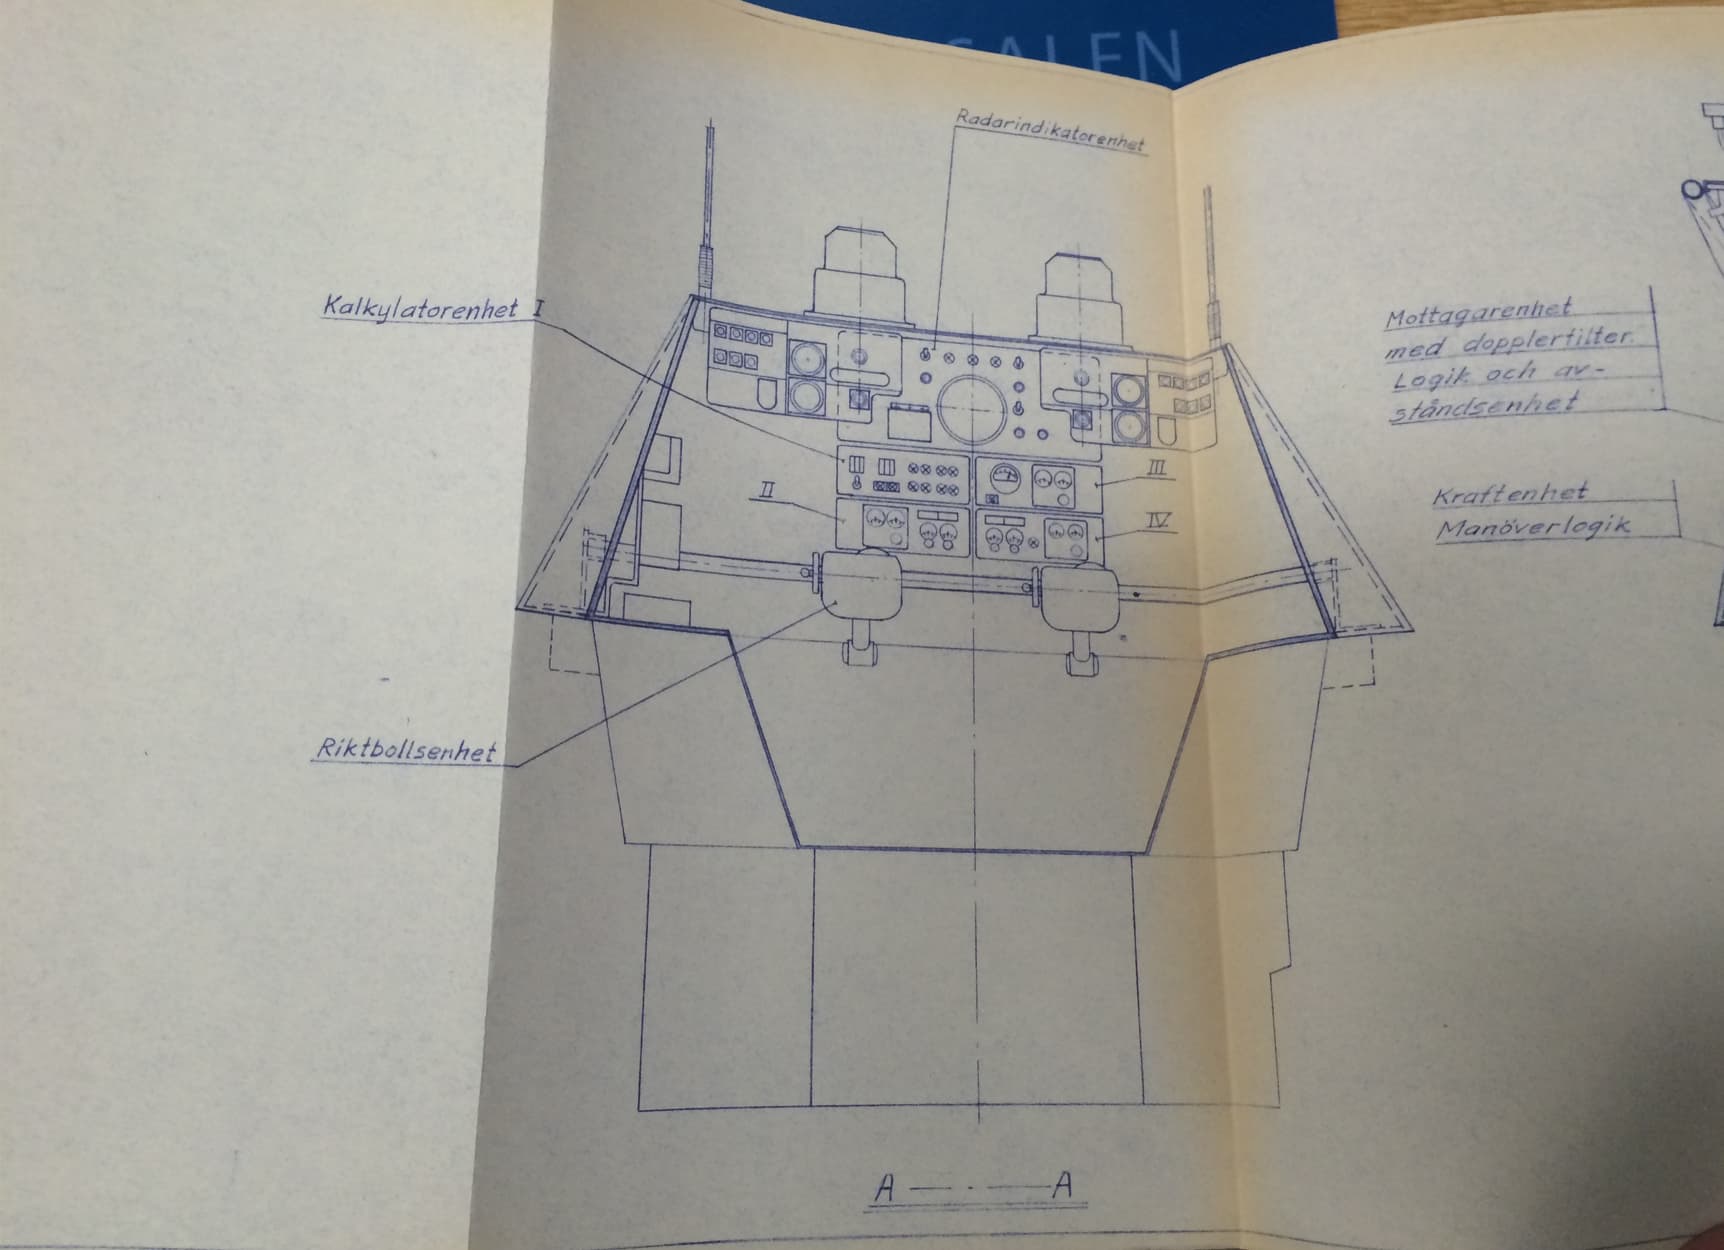 SALEN
Radarindikatorenhet
Kalkylatorenhet I
II
III
IV
Riktbollsenhet
Mottagarenhet
med dopplerfilter.
Logik och av-
ståndsenhet
Kraftenhet
Manöverlogik
A — · — A